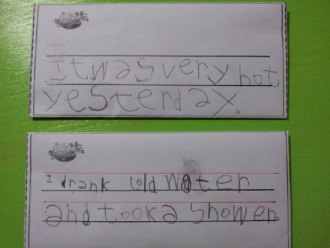 It was very hot
yesterday.
I drank cold water
and took a shower